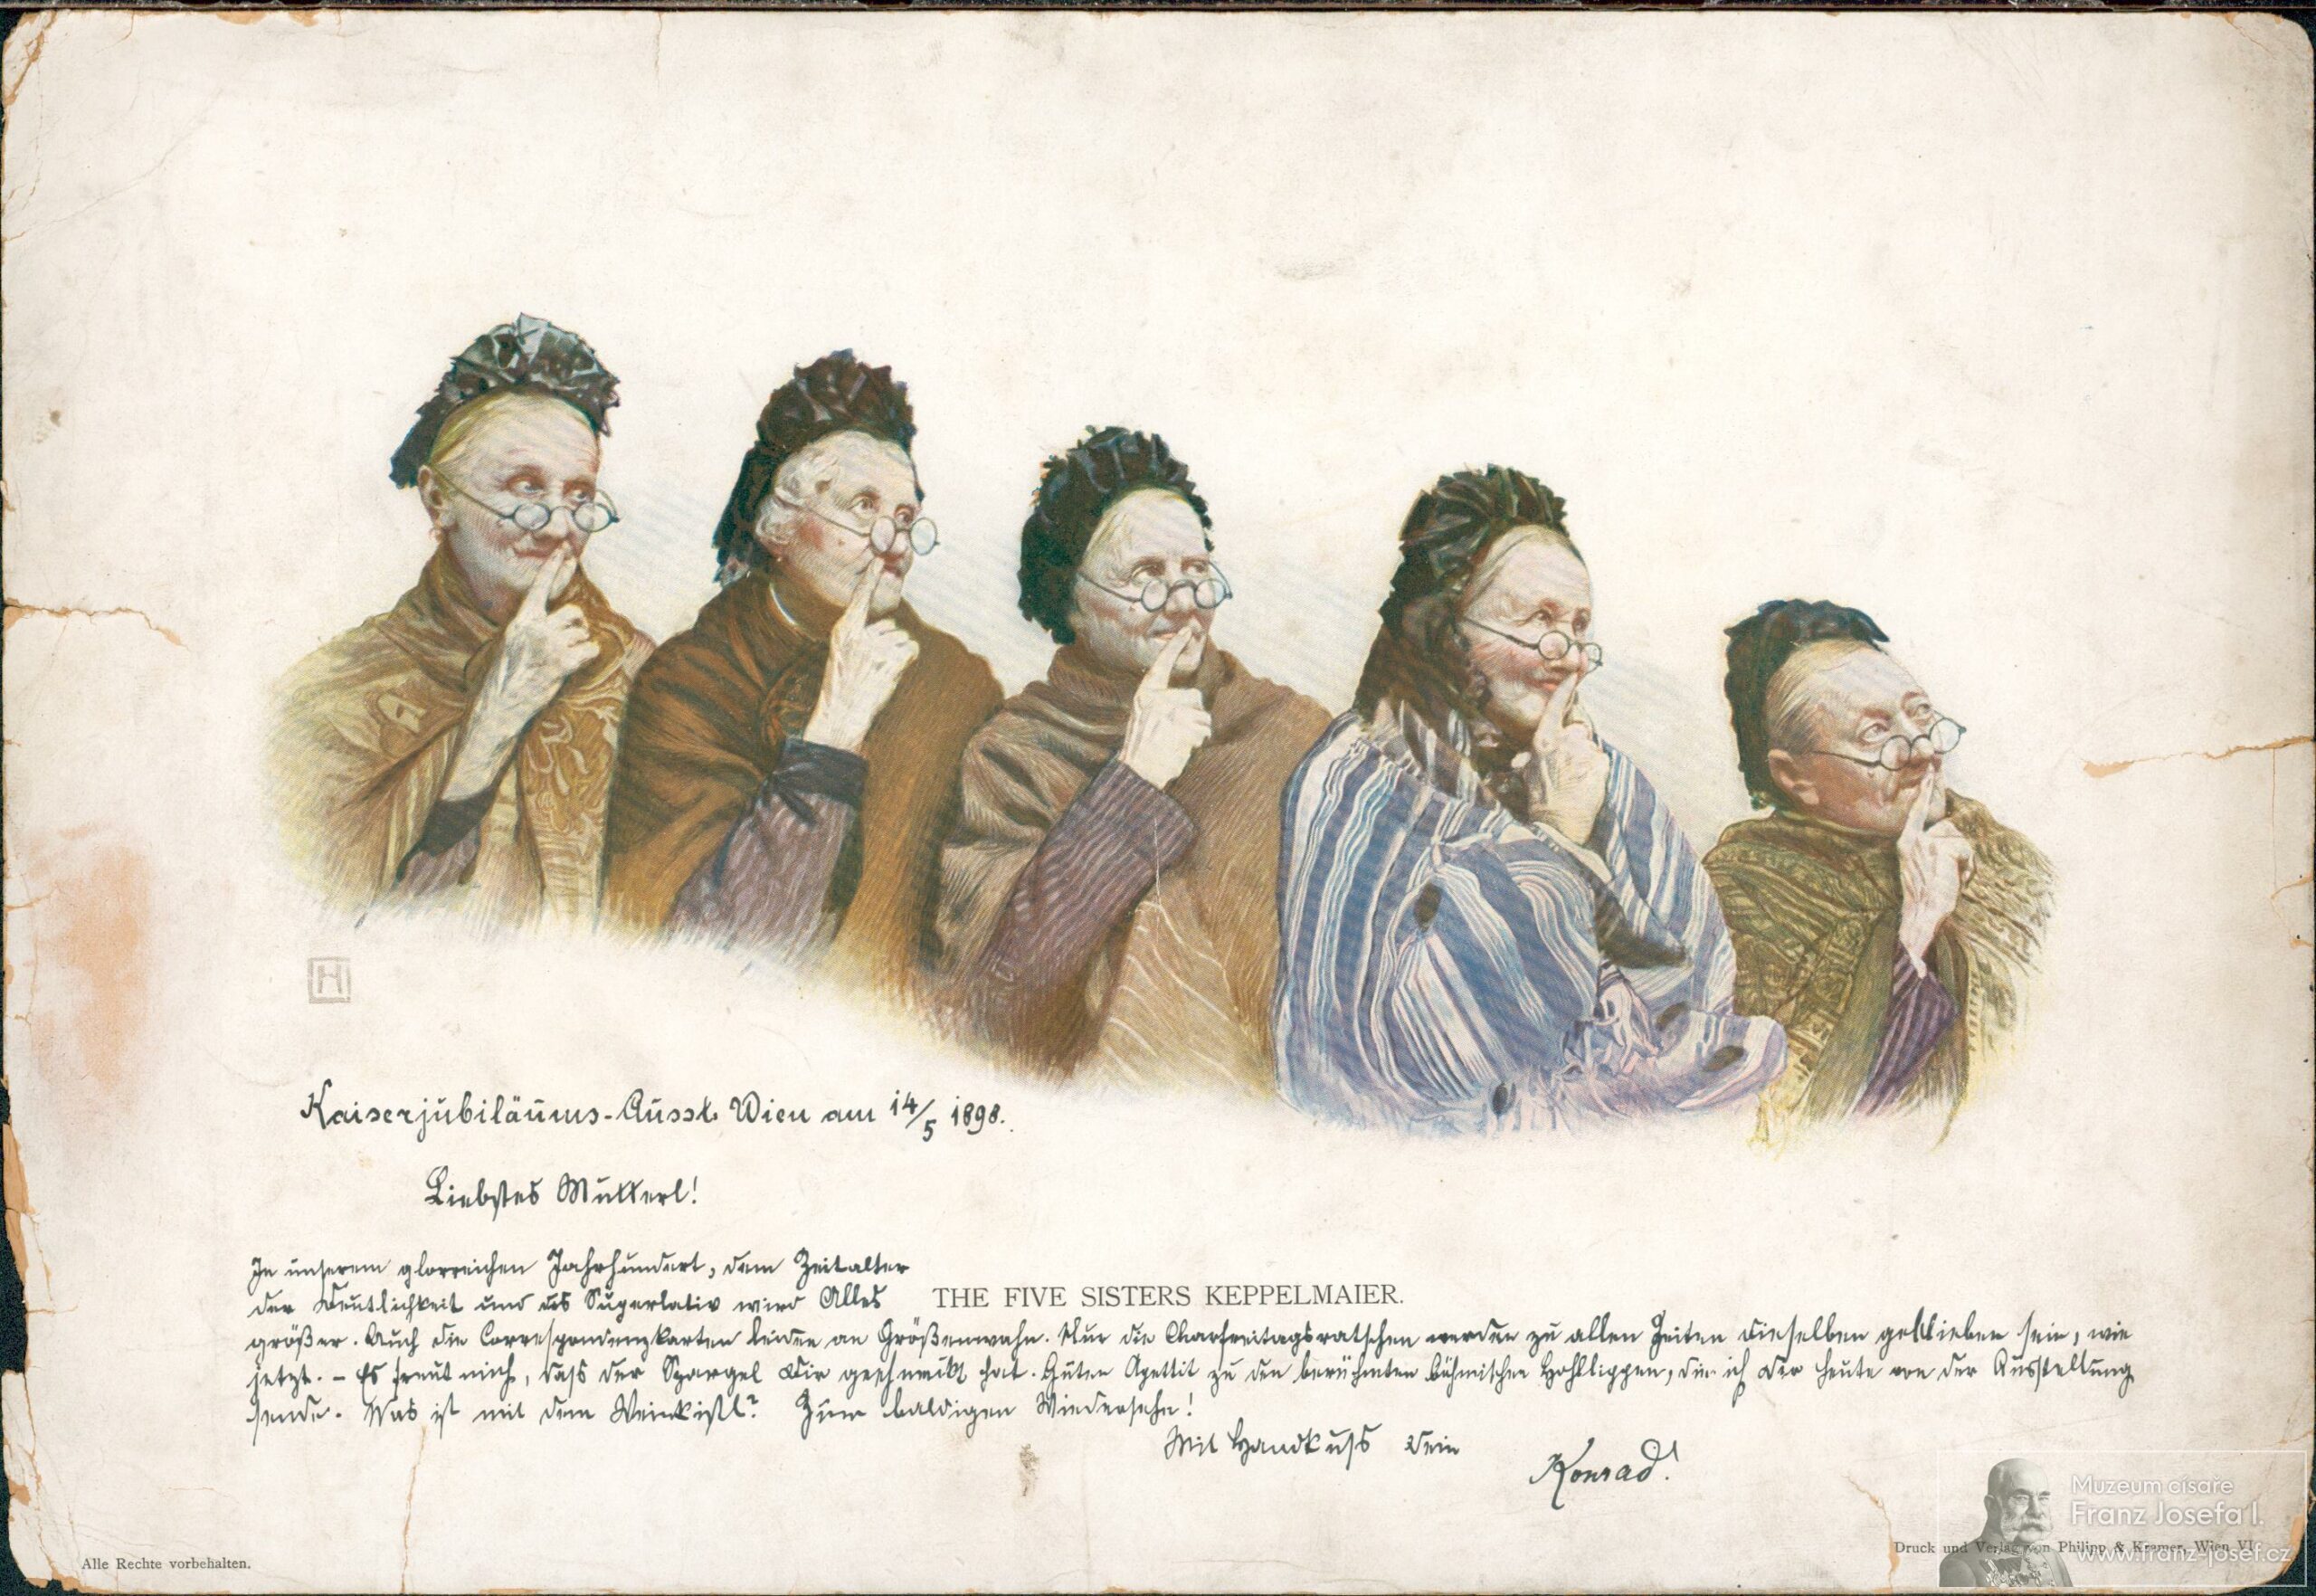 H
Kaiserjubiläums-Ausst. Wien am 14/5 1898.
Liebstes Mutterl!
In unserem glorreichen Jahrhundert, dem Zeitalter
der Deutlichkeit und des Superlativ wird Alles
THE FIVE SISTERS KEPPELMAIER.
größer. Auch die Correspondenzkarten leiden an Größenwahn. Nur die Charfreitagsratschen werden zu allen Zeiten dieselben geblieben sein, wie
jetzt. – Es freut mich, dass der Spargel Dir geschmeckt hat. Guten Apettit zu den berühmten böhmischen Hohllippen, die ich Dir heute von der Ausstellung
sende. Was ist mit dem Weinkistl? Zum baldigen Wiedersehn!
Mit Handkuss Dein
Konrad!
Alle Rechte vorbehalten.
Druck und Verlag von Philipp & Kramer, Wien VI.
Muzeum císaře
Franz Josefa I.
www.franz-josef.cz